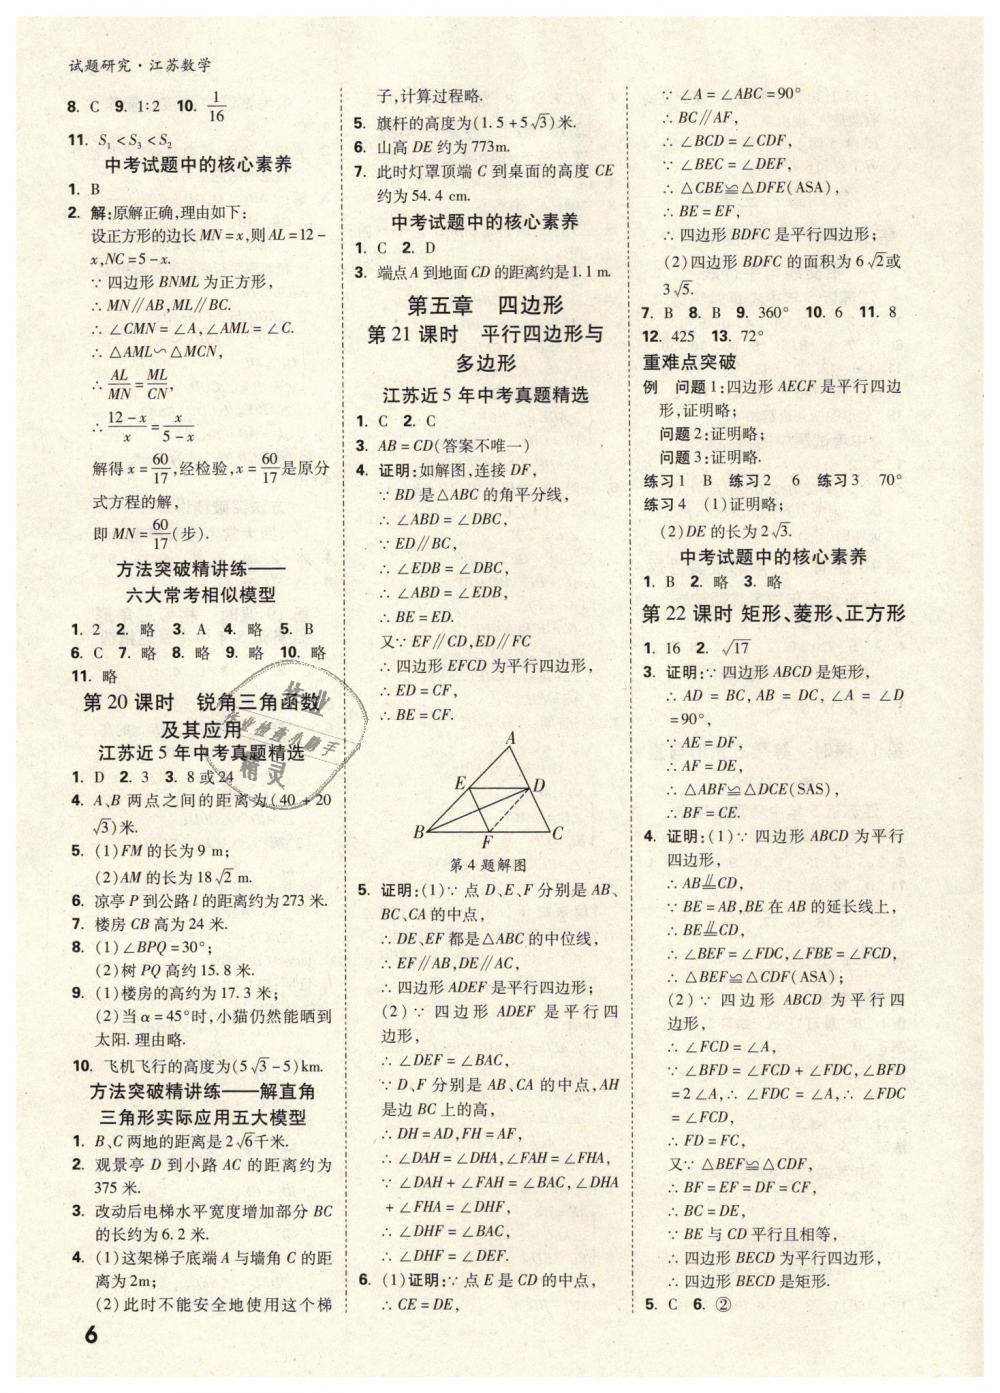 试题研究·江苏数学
8. C 9. 1:2 10. 1/16
11. S₁<S₃<S₂
中考试题中的核心素养
1. B
2. 解:原解正确,理由如下:
设正方形的边长MN=x,则AL=12-
x,NC=5-x.
∵四边形BNML为正方形,
∴MN∥AB,ML∥BC.
∴∠CMN=∠A,∠AML=∠C.
∴△AML∽△MCN,
∴AL/MN=ML/CN,
∴(12-x)/x=x/(5-x)
解得x=60/17,经检验,x=60/17是原分
式方程的解,
即MN=60/17(步).
方法突破精讲练——
六大常考相似模型
1. 2 2. 略 3. A 4. 略 5. B
6. C 7. 略 8. 略 9. 略 10. 略
11. 略
第20课时 锐角三角函数
及其应用
江苏近5年中考真题精选
1. D 2. 3 3. 8或24
4. A、B两点之间的距离为(40+20
√3)米.
5. (1)FM的长为9 m;
(2)AM的长为18√2 m.
6. 凉亭P到公路l的距离约为273米.
7. 楼房CB高为24米.
8. (1)∠BPQ=30°;
(2)树PQ高约15.8米.
9. (1)楼房的高约为17.3米;
(2)当α=45°时,小猫仍然能晒到
太阳.理由略.
10. 飞机飞行的高度为(5√3-5)km.
方法突破精讲练——解直角
三角形实际应用五大模型
1. B、C两地的距离是2√6千米.
2. 观景亭D到小路AC的距离约为
375米.
3. 改动后电梯水平宽度增加部分BC
的长约为6.2米.
4. (1)这架梯子底端A与墙角C的距
离为2m;
(2)此时不能安全地使用这个梯
6
子,计算过程略.
5. 旗杆的高度为(1.5+5√3)米.
6. 山高DE约为773m.
7. 此时灯罩顶端C到桌面的高度CE
约为54.4 cm.
中考试题中的核心素养
1. C 2. D
3. 端点A到地面CD的距离约是1.1 m.
第五章 四边形
第21课时 平行四边形与
多边形
江苏近5年中考真题精选
1. C 2. C
3. AB=CD(答案不唯一)
4. 证明:如解图,连接DF,
∵BD是△ABC的角平分线,
∴∠ABD=∠DBC,
∵ED∥BC,
∴∠EDB=∠DBC,
∴∠ABD=∠EDB,
∴BE=ED.
又∵EF∥CD,ED∥FC
∴四边形EFCD为平行四边形,
∴ED=CF,
∴BE=CF.
A
E D
B F C
第4题解图
5. 证明:(1)∵点D、E、F分别是AB、
BC、CA的中点,
∴DE、EF都是△ABC的中位线,
∴EF∥AB,DE∥AC,
∴四边形ADEF是平行四边形;
(2)∵四边形ADEF是平行四
边形,
∴∠DEF=∠BAC,
∵D、F分别是AB、CA的中点,AH
是边BC上的高,
∴DH=AD,FH=AF,
∴∠DAH=∠DHA,∠FAH=∠FHA,
∵∠DAH+∠FAH=∠BAC,∠DHA
+∠FHA=∠DHF,
∴∠DHF=∠BAC,
∴∠DHF=∠DEF.
6. (1)证明:∵点E是CD的中点,
∴CE=DE,
∵∠A=∠ABC=90°
∴BC∥AF,
∴∠BCD=∠CDF,
∵∠BEC=∠DEF,
∴△CBE≌△DFE(ASA),
∴BE=EF,
∴四边形BDFC是平行四边形;
(2)四边形BDFC的面积为6√2或
3√5.
7. B 8. B 9. 360° 10. 6 11. 8
12. 425 13. 72°
重难点突破
例 问题1:四边形AECF是平行四边
形,证明略;
问题2:证明略;
问题3:证明略.
练习1 B 练习2 6 练习3 70°
练习4 (1)证明略;
(2)DE的长为2√3.
中考试题中的核心素养
1. B 2. 略 3. 略
第22课时 矩形、菱形、正方形
1. 16 2. √17
3. 证明:∵四边形ABCD是矩形,
∴AD=BC,AB=DC,∠A=∠D
=90°,
∵AE=DF,
∴AF=DE,
∴△ABF≌△DCE(SAS),
∴BF=CE.
4. 证明:(1)∵四边形ABCD为平行
四边形,
∴AB⫫CD,
∵BE=AB,BE在AB的延长线上,
∴BE⫫CD,
∴∠BEF=∠FDC,∠FBE=∠FCD,
∴△BEF≌△CDF(ASA);
(2)∵四边形ABCD为平行四
边形,
∴∠FCD=∠A,
∵∠BFD=∠FCD+∠FDC,∠BFD
=2∠A,∴∠FDC=∠A,∴∠FDC
=∠FCD,
∴FD=FC,
又∵△BEF≌△CDF,
∴BF=EF=DF=CF,
∴BC=DE,
∵BE与CD平行且相等,
∴四边形BECD为平行四边形,
∴四边形BECD是矩形.
5. C 6. ②
作业
作业检查小助手
精灵